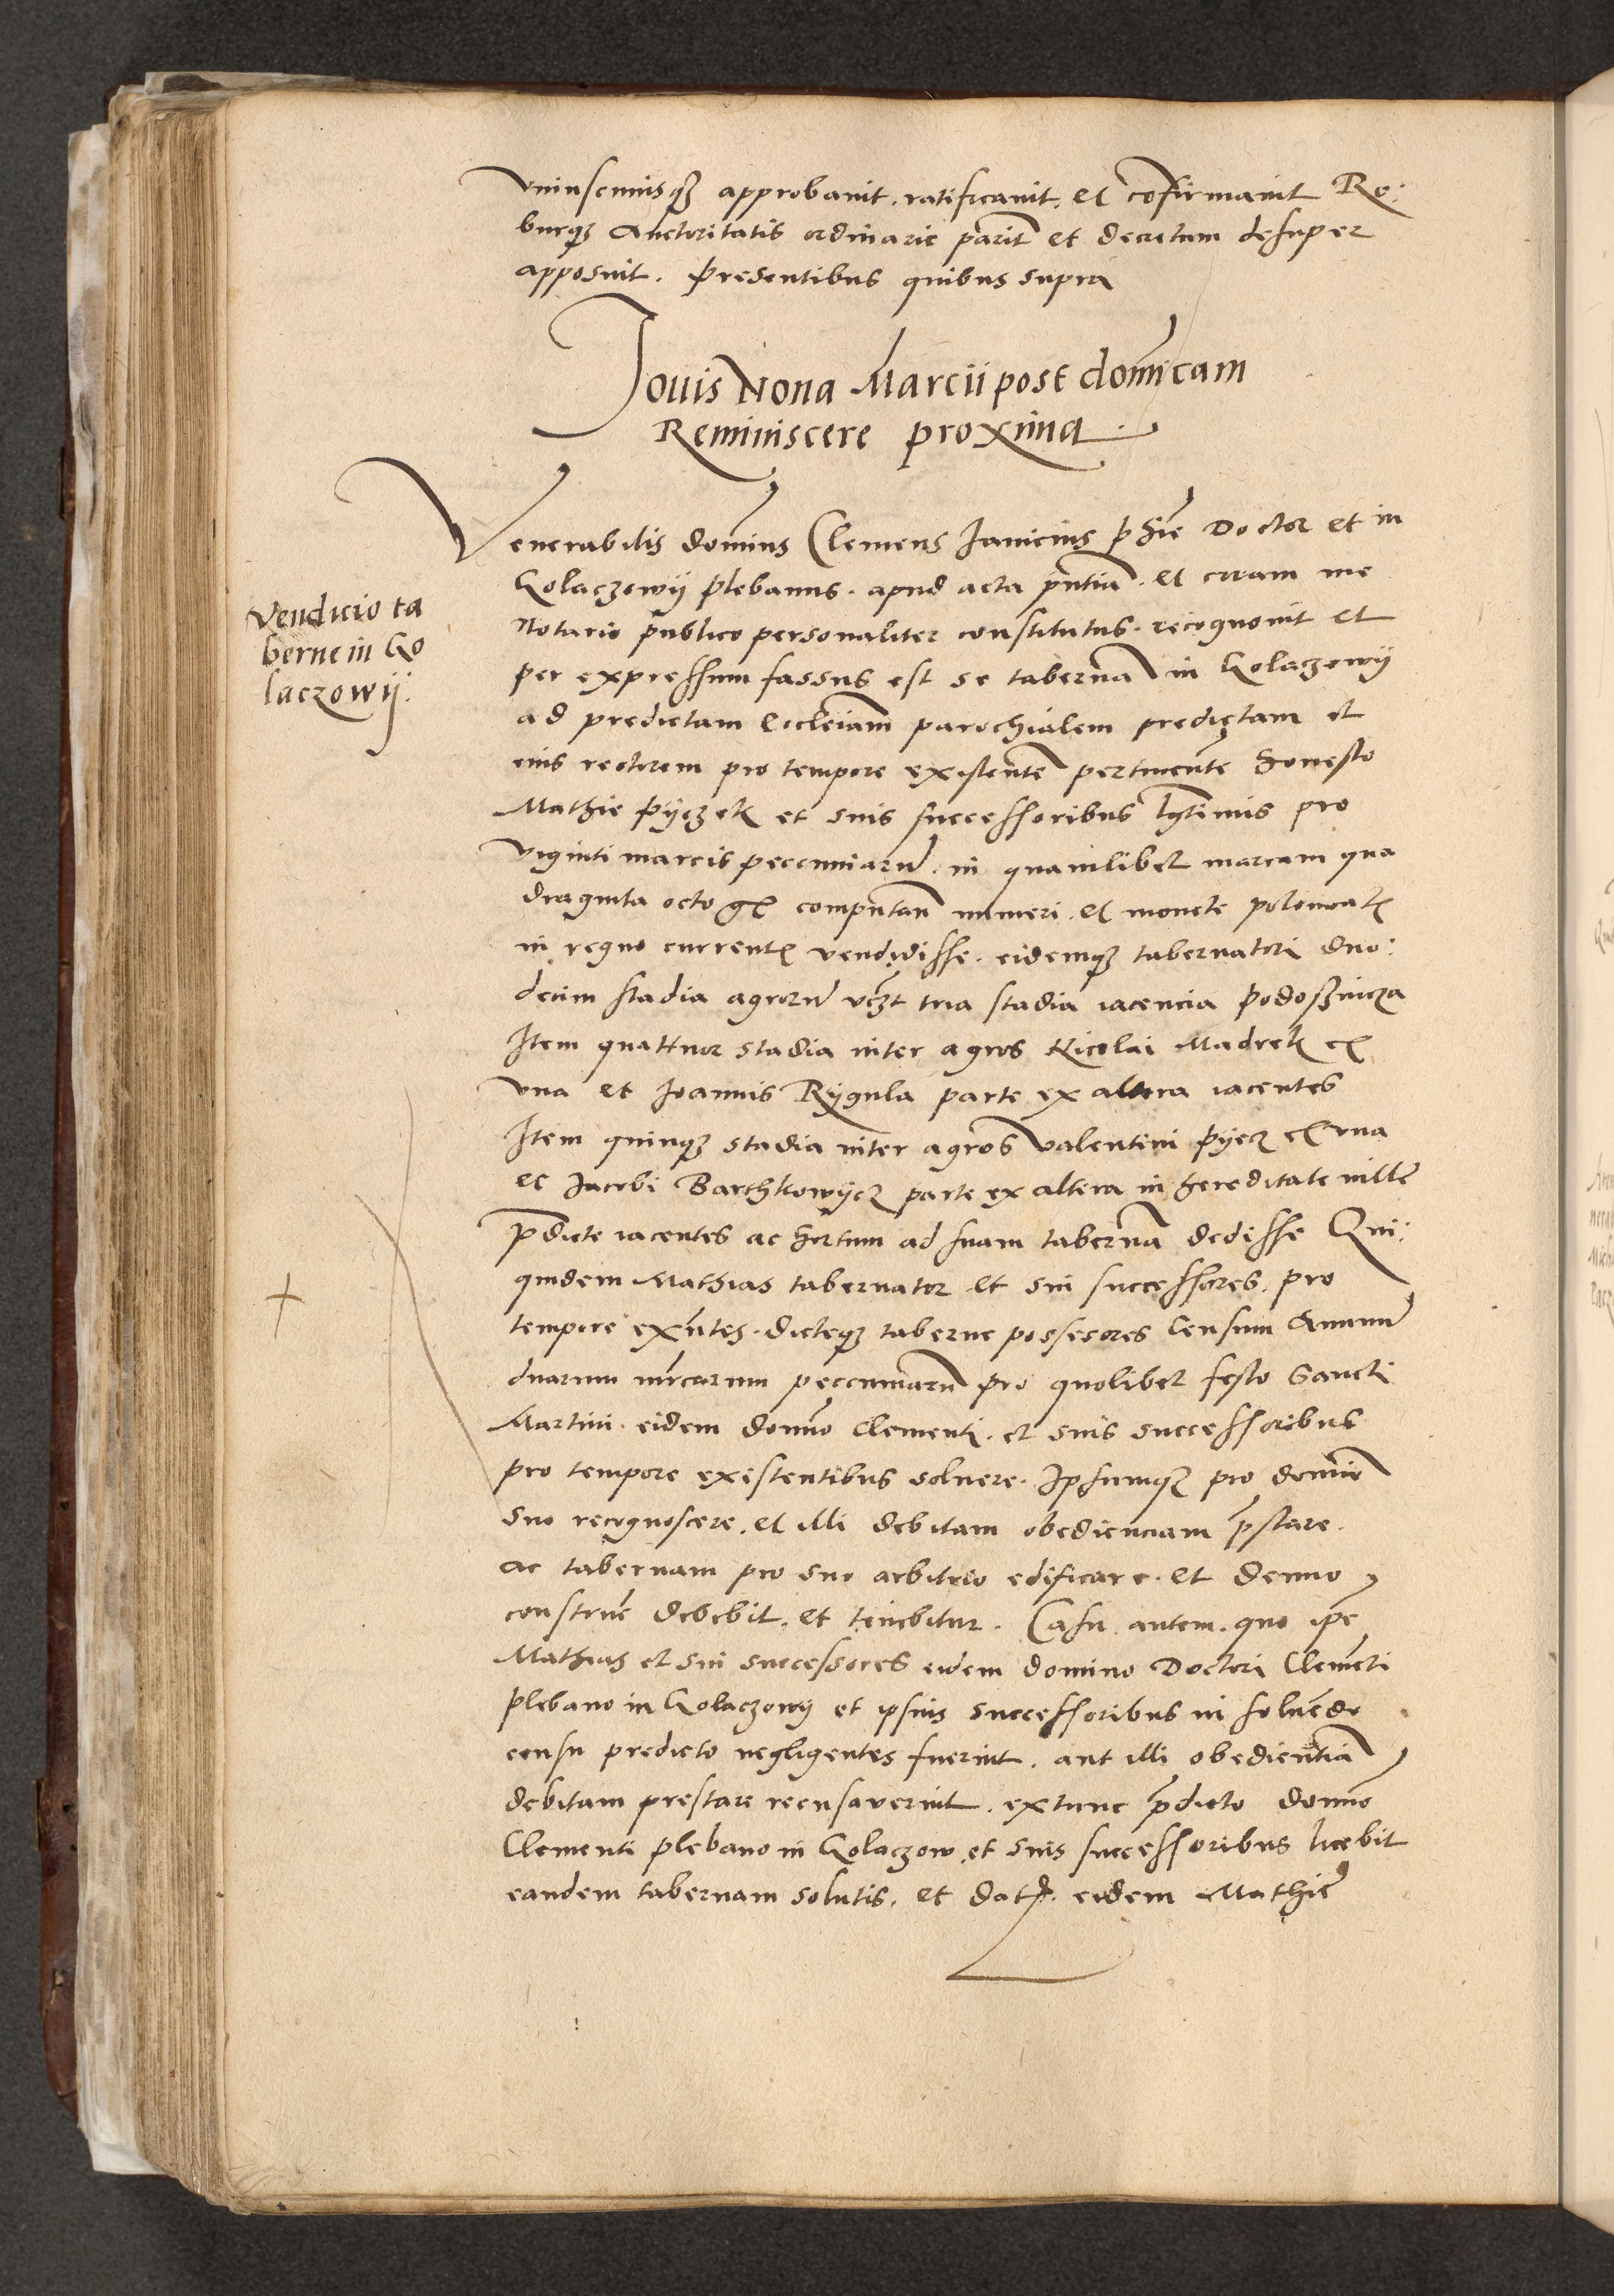 vniuscuiusq₃ approbauit. ratificauit. et cōfirmauit Ro:
burq₃ Auctoritatis ordinarie parit̄ et decretum desuper
apposuit. Presentibus quibus supra
Jouis Nona Marcii post domīcam
Reminiscere proxima.
Venerabilis domīnus Clemens Janicius phīe Doctor et in
Golaczowÿ plebanus. apud acta pn̄tia. et coram me
Notario publico personaliter constitutus. recognouit et
per expressum fassus est se tabernā in Golaczowÿ
ad predictam Eccleīam parochialem predictam et
eius rectorem pro tempore existentē pertinentē honesto
Mathie Pÿczek et suis successoribus lgtīmis pro
viginti marcis pecunniarū. in quamlibet marcam qua
draginta octo gr̄ computan̄ numeri. et monete polonicat̄
in regno curren̄t vendidisse. eidemq₃ tabernatori duo:
decim stadia agrorū vcz̄t tria stadia iacencia Podosznicza
Item quattuor stadia inter agros Nicolai Madrek ex
vna et Joannis Rÿgula parte ex altera iacentes
Item quinq₃ stadia inter agros Valentini Pÿecz ex vna
et Jacobi Barthkowÿcz parte ex altera in hereditate uillē
p̄dicte iacentes ac hortum ad suam tabernā dedisse Qui:
quidem Mathias tabernator et sui successores. pro
tempore exn̄tes. dicteq₃ taberne possesores Censum Annuū
duarum mr̄carum peccuniarū pro quolibet festo Sancti
Martini. eidem domīno Clementi. et suis successoribus
pro tempore existentibus soluere. Ipsumq₃ pro domīo
suo recognoscere. et illi debitam obedienciam p̄stare.
ac tabernam pro suo arbitrio edificare. et denuo
construē debebit. et tenebitur. Casu autem. quo ip̄e
Mathias et sui successores eidem domino Doctori Clemēti
plebano in Golaczowÿ et ipsius successoribus in soluēdo
censu predicto negligentes fuerint. aut illi obedientiā
debitam prestare recusaverint. extunc p̄dicto domīno
Clementi plebano in Golaczow. et suis successoribus licebit
eandem tabernam solutis. et dat̄. eidem Mathie
Vendicio ta
berne in Go
laczowÿ: